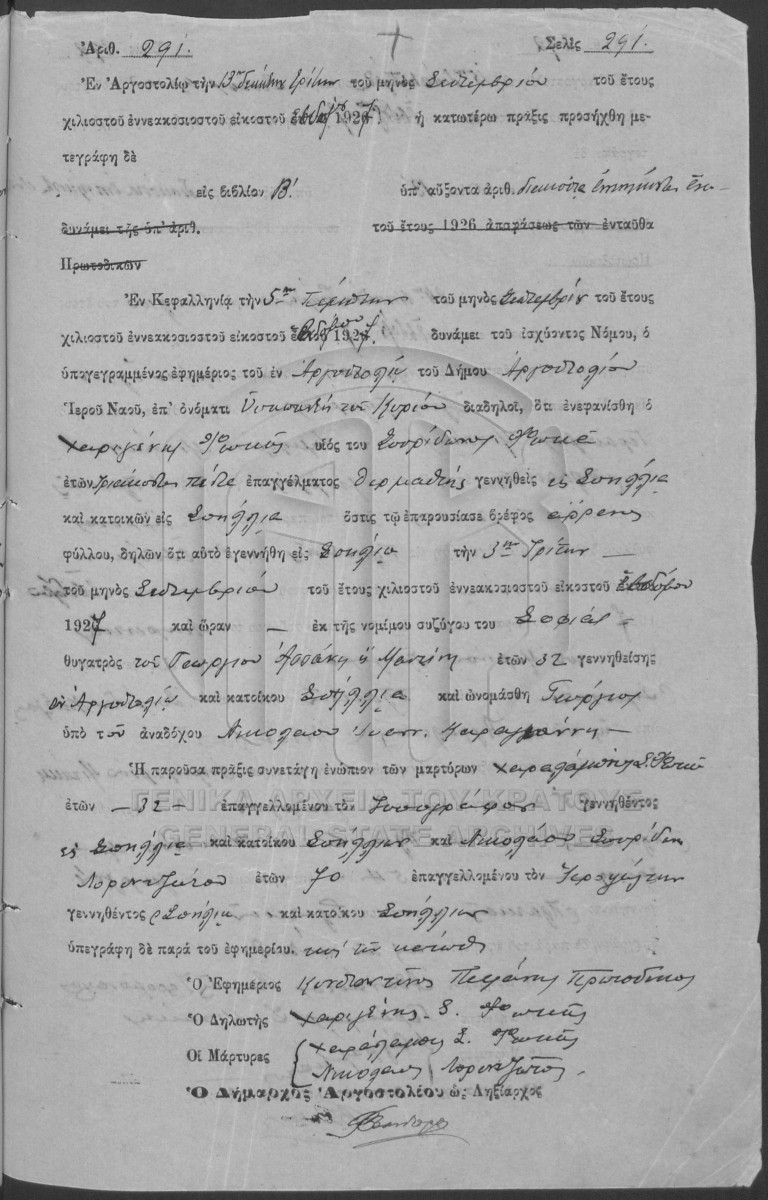 Ἀριθ. 291. Σελὶς 291.
Ἐν Ἀργοστολίῳ τὴν 13ην δεκάτην τρίτην τοῦ μηνὸς Σεπτεμβρίου τοῦ ἔτους
χιλιοστοῦ ἐννεακοσιοστοῦ εἰκοστοῦ ἑβδόμου 1927 ἡ κατωτέρω πρᾶξις προσήχθη με-
τεγράφη δὲ
εἰς βιβλίον Β! ὑπ' αὔξοντα ἀριθ. διακόσια ἐνενήκοντα ἕνα
δυνάμει τῆς ὑπ' ἀριθ. τοῦ ἔτους 1926 ἀποφάσεως τῶν ἐνταῦθα
Πρωτοδικῶν
Ἐν Κεφαλληνίᾳ τὴν 5ην Πέμπτην τοῦ μηνὸς Σεπτεμβρίου τοῦ ἔτους
χιλιοστοῦ ἐννεακοσιοστοῦ εἰκοστοῦ ἑβδόμου 1927 δυνάμει τοῦ ἰσχύοντος Νόμου, ὁ
ὑπογεγραμμένος ἐφημέριος τοῦ ἐν Ἀργοστολίῳ τοῦ Δήμου Ἀργοστολίου
Ἱεροῦ Ναοῦ, ἐπ' ὀνόματι Ὑπαπαντή τοῦ Κυρίου διαδηλοῖ, ὅτι ἐνεφανίσθη ὁ
Χαριγένης Φωκᾶς υἱός του Σπυρίδωνος Φωκᾶ
ἐτῶν τριάκοντα πέντε ἐπαγγέλματος θερμαστής γεννηθεὶς εἰς Σπήλλια
καὶ κατοικῶν εἰς Σπήλλια ὅστις τῷ ἐπαρουσίασε βρέφος ἄρρενος
φύλλου, δηλῶν ὅτι αὐτὸ ἐγεννήθη εἰς Σπήλια τὴν 3ην Τρίτην —
τοῦ μηνὸς Σεπτεμβρίου τοῦ ἔτους χιλιοστοῦ ἐννεακοσιοστοῦ εἰκοστοῦ ἑβδόμου
1927 καὶ ὥραν — ἐκ τῆς νομίμου συζύγου του Σοφίας
θυγατρὸς τοῦ Γεωργίου ἐτῶν 32 γεννηθείσης
ἐν Ἀργοστολίῳ καὶ κατοίκου Σπήλλια καὶ ὠνομάσθη Γεώργιος
ὑπὸ τοῦ ἀναδόχου Νικολάου Ἰωαν. Καραγιάννη —
Ἡ παροῦσα πρᾶξις συνετάγη ἐνώπιον τῶν μαρτύρων Χαραλάμπους Σ. Φωκᾶ
ἐτῶν — 32 — ἐπαγγελλομένου τὸν Τυπογράφον γεννηθέντος
εἰς Σπήλλια καὶ κατοίκου Σπηλλίων καὶ Νικολάου Σπυρίδων
Λορεντζάτου ἐτῶν 70 ἐπαγγελλομένου τὸν Ἱεροψάλτην
γεννηθέντος Σπήλια καὶ κατοίκου Σπηλλίων
ὑπεγράφη δὲ παρὰ τοῦ ἐφημερίου.
Ὁ Ἐφημέριος Κωνσταντῖνος
Ὁ Δηλωτὴς Χαριγένης Σ. Φωκᾶς
Οἱ Μάρτυρες Χαράλαμπος Σ. Φωκᾶς
Νικόλαος Λορεντζάτος
Ὁ Δήμαρχος Ἀργοστολίου ὡς Ληξίαρχος
ΓΕΝΙΚΑ ΑΡΧΕΙΑ ΤΟΥ ΚΡΑΤΟΥΣ
GENERAL STATE ARCHIVES